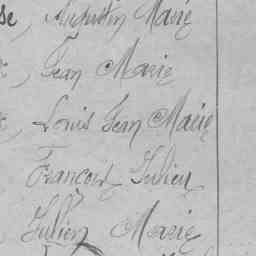 se, Augustin Marie
, Jean Marie
, Louis Jean Marie
François Julien
, Julien Marie